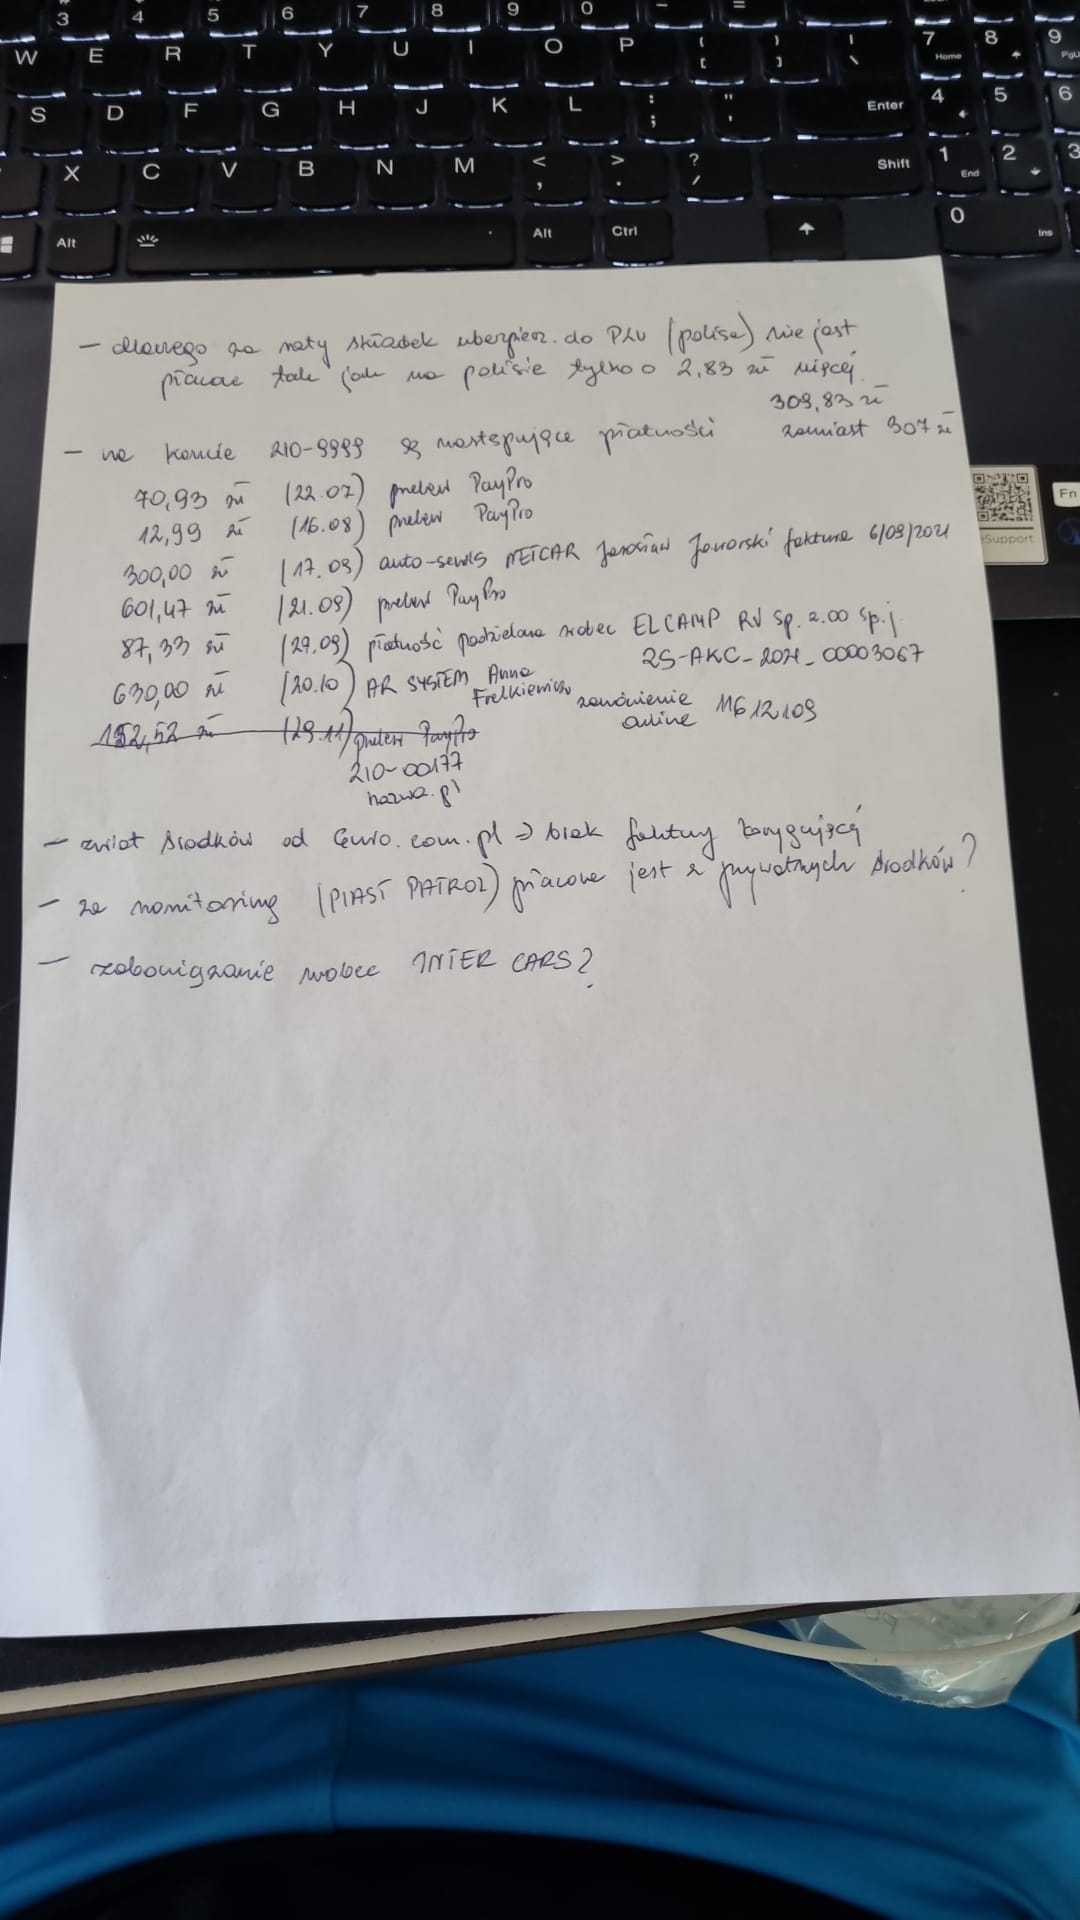 3 4 5 6 7 8 9 0 - =
W E R T Y U I O P { [ } ] | \ 7 Home 8 9 PgU
S D F G H J K L : ; " ' Enter 4 5 6
X C V B N M < , > . ? / Shift 1 End 2 3
Alt Alt Ctrl 0 Ins
Fn
Support
- dlaczego za raty składek ubezpiecz. do PZU (polisa) nie jest
płacone tak jak na polisie tylko o 2,83 zł więcej
309,83 zł
zamiast 307 zł
- na koncie 210-9999 są następujące płatności
70,93 zł (22.07) przelew PayPro
12,99 zł (16.08) przelew PayPro
300,00 zł (17.09) auto-serwis NETCAR Jarosław Jaworski faktura 6/09/2021
601,47 zł (21.09) przelew PayPro
87,33 zł (29.09) płatność podzielona wobec ELCAMP RV Sp. z.oo sp.j.
2S-AKC-2021_00003067
630,00 zł (20.10) AR SYSTEM Anna Frelkiewicz zamówienie online 11612109
152,52 zł (29.11) przelew PayPro
210-00177
nazwa.pl
- zwrot środków od Euro.com.pl => brak faktury korygującej
- za monitoring (PIAST PATROL) płacone jest z prywatnych środków?
- zobowiązanie wobec INTER CARS?